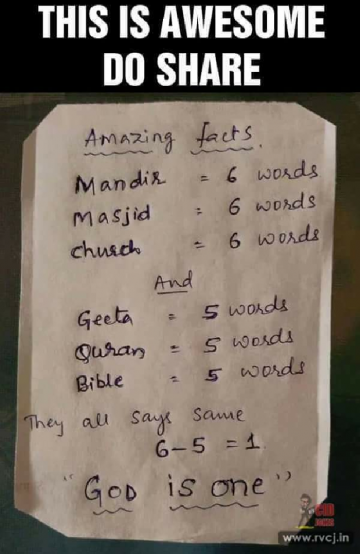 THIS IS AWESOME
DO SHARE
Amazing facts.
Mandir = 6 words
Masjid = 6 words
church = 6 words
And
Geeta = 5 words
Quran = 5 words
Bible = 5 words
They all says same
6-5 = 1
"GOD is one"
www.rvcj.in